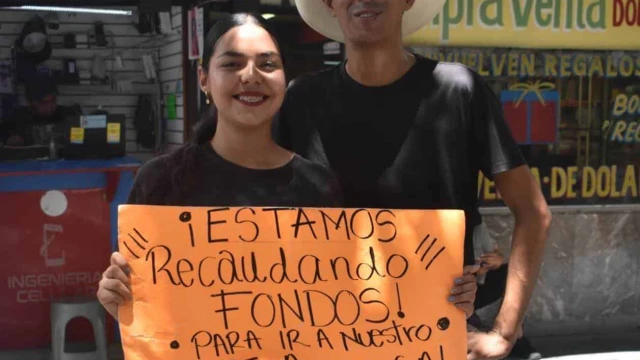 pra venta DO
UELVEN REGALOS
BO
"RE
VENTA-DE DOLA
i
INGENIERIA
CEL
¡ESTAMOS
Recaudando
FONDOS!
PARA IR A NUESTRO